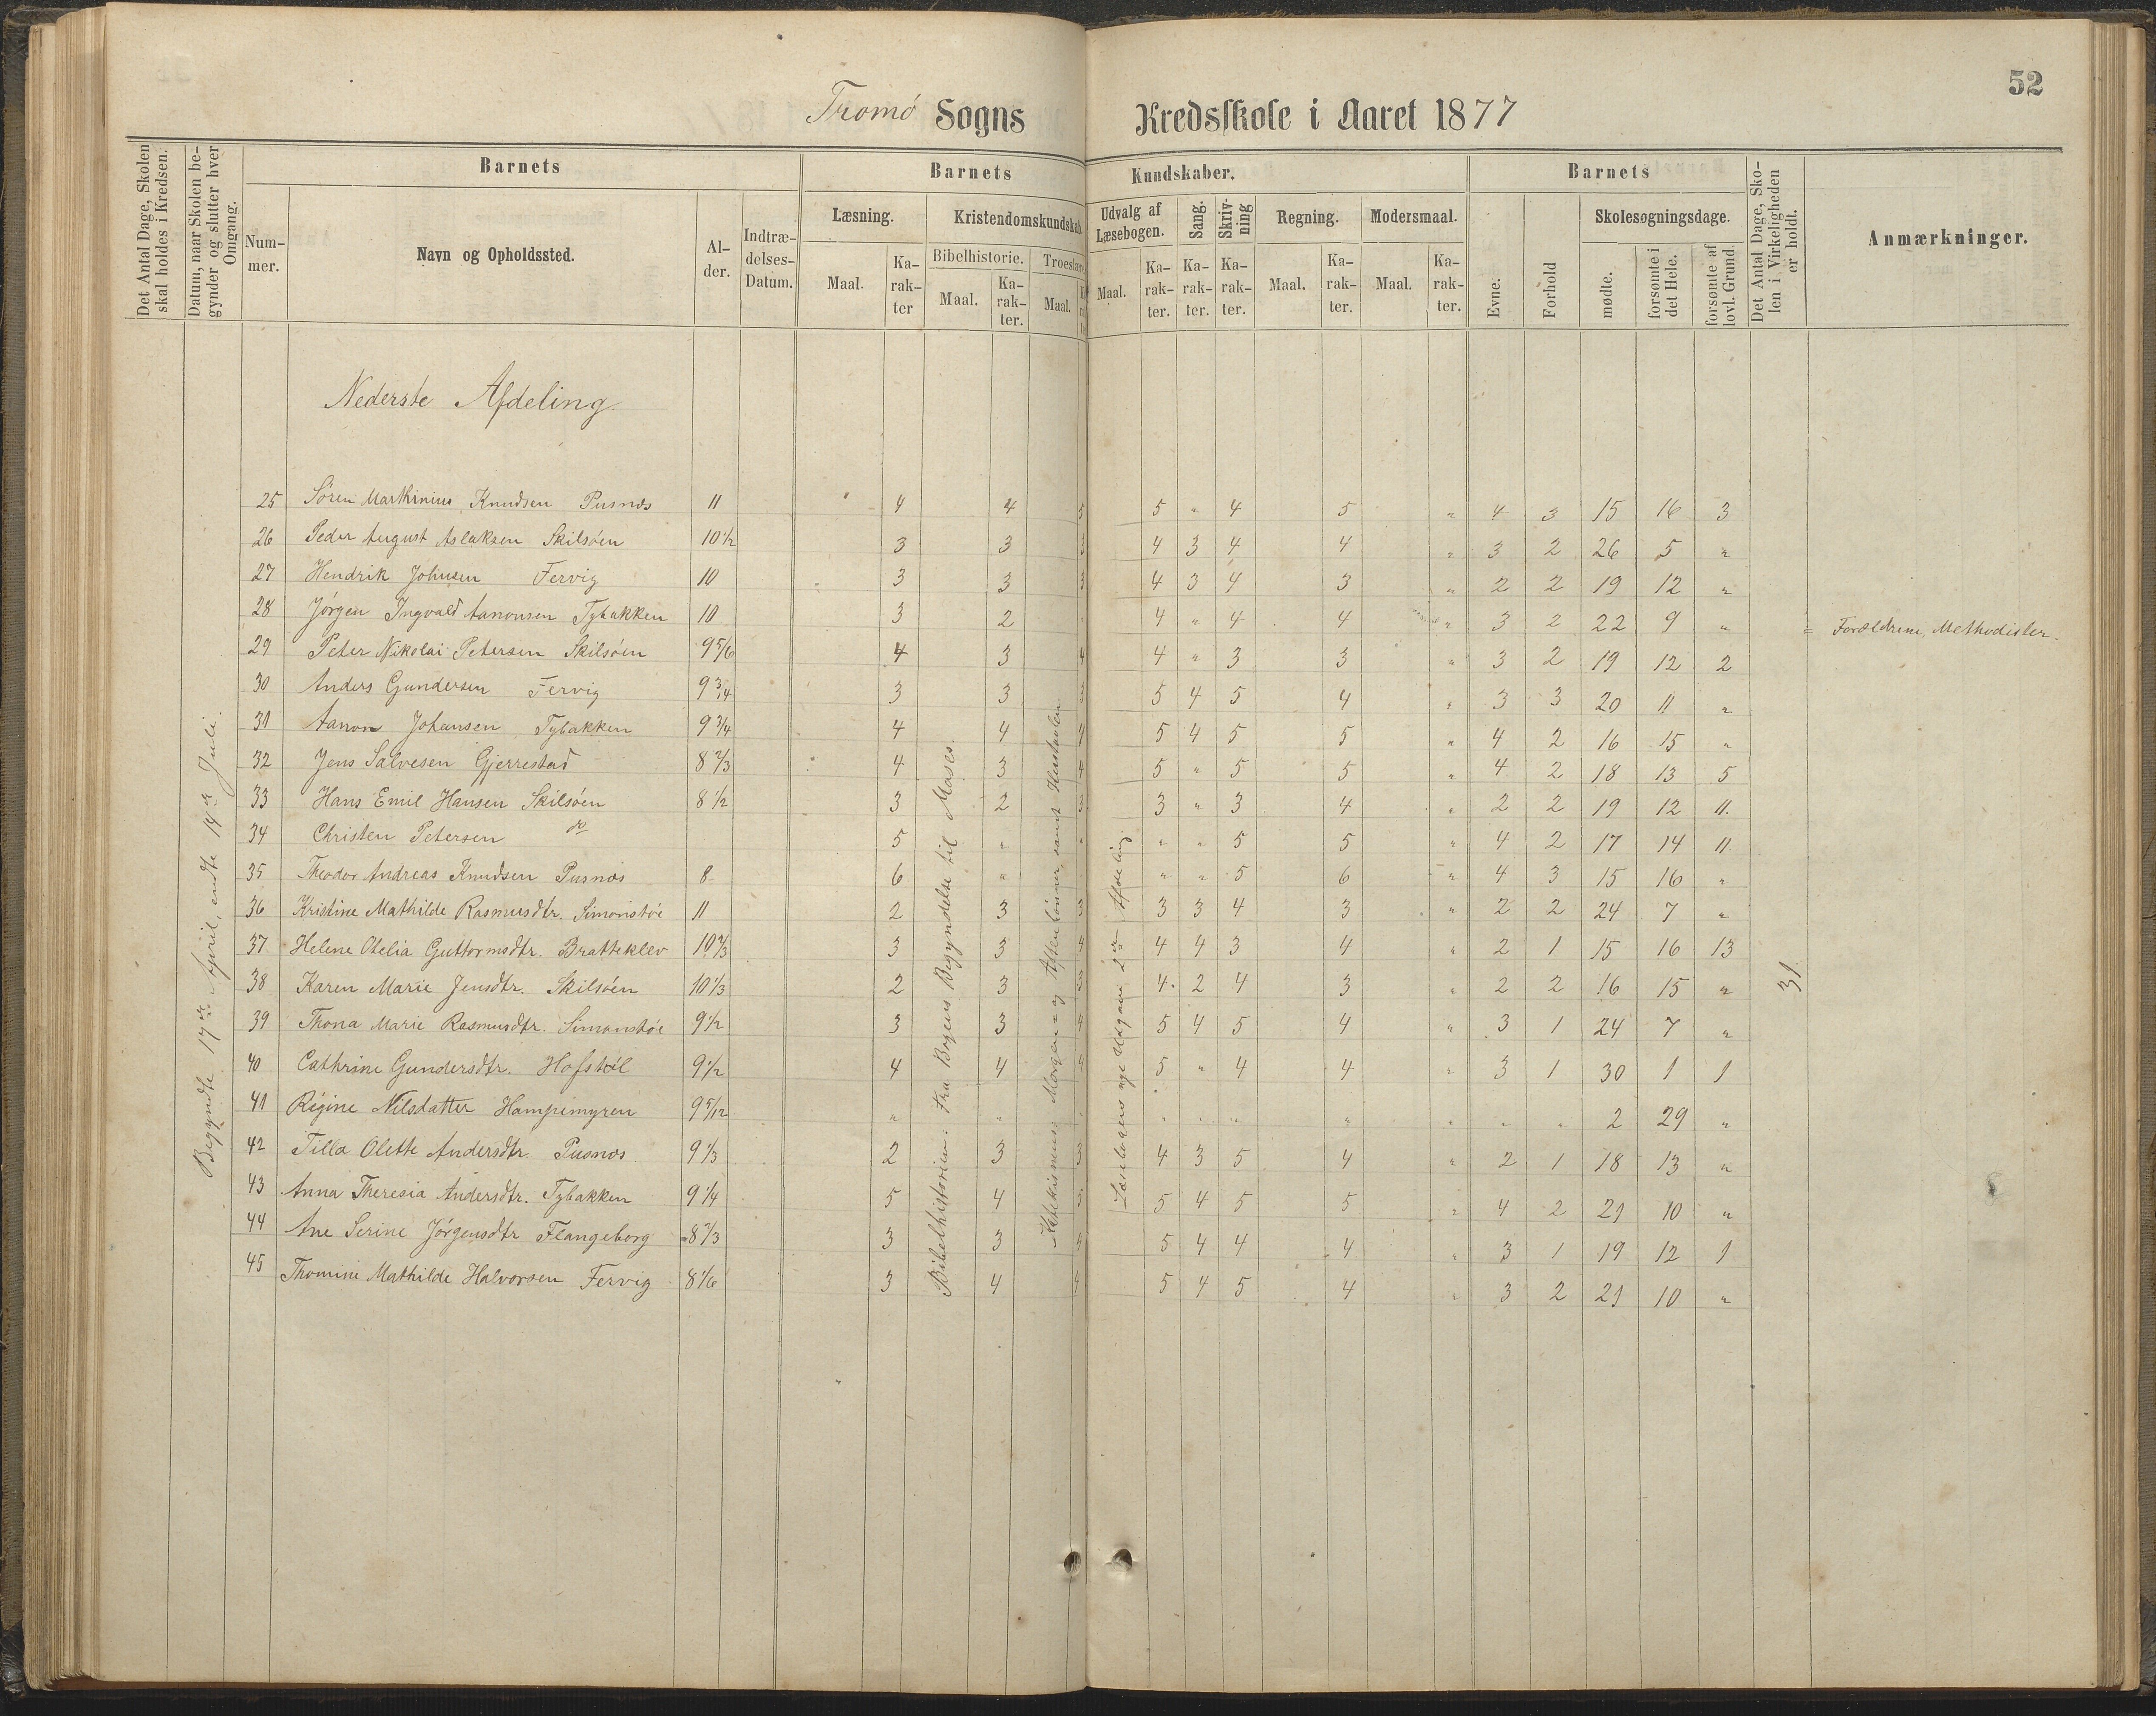 52
Tromö Sogns Kredsskole i Aaret 1877
Det Antal Dage, Skolen skal holdes i Kredsen.
Datum, naar Skolen begynder og slutter hver Omgang.
Barnets
Nummer.
Navn og Opholdssted.
Alder.
Indtrædelses-Datum.
Barnets Kundskaber.
Læsning.
Maal.
Karakter
Kristendomskundskab.
Bibelhistorie.
Maal.
Karakter.
Troeslære
Maal.
Udvalg af Læsebogen.
Maal.
Karakter.
Sang.
Karakter.
Skrivning
Karakter.
Regning.
Maal.
Karakter.
Modersmaal.
Maal.
Karakter.
Barnets
Evne.
Forhold
Skolesøgningsdage.
mødte.
forsømte i det Hele.
forsømte af lovl. Grund.
Det Antal Dage, Skolen i Virkeligheden er holdt.
Anmærkninger.
Nederste Afdeling.
Begyndte 17de April, endte 14de Juli.
Bibelhistorien: Fra Bogens Begyndelse til Moses.
Katekismus: Morgen- og Aftenbønner samt Hustavlen
Læsebogens nye Udgave 2den Afdeling
31
25 Sören Marthinius Knudsen Pusnæs 11 4 4 5 5 " 4 5 " 4 3 15 16 3
26 Peder August Aslaksen Skilsöen 10 1/2 3 3 3 4 3 4 4 " 3 2 26 5 "
27 Hendrik Johnsen Fervig 10 3 3 3 4 3 4 3 " 2 2 19 12 "
28 Jörgen Ingvald Aanonsen Tybakken 10 3 2 4 " 4 4 " 3 2 22 9 " Forældrene, Methodister.
29 Peter Nikolai Petersen Skilsöen 9 5/6 4 3 4 4 " 3 3 " 3 2 19 12 2
30 Anders Gundersen Fervig 9 3/4 3 3 3 5 4 5 4 " 3 3 20 11 "
31 Aanon Johansen Tybakken 9 3/4 4 4 4 5 4 5 5 " 4 2 16 15 "
32 Jens Salvesen Gjerrestad 8 2/3 4 3 4 5 " 5 5 " 4 2 18 13 5
33 Hans Emil Hansen Skilsöen 8 1/2 3 2 3 3 " 3 4 " 2 2 19 12 11.
34 Christen Petersen do 5 " " " " 5 5 " 4 2 17 14 11.
35 Theodor Andreas Knudsen Pusnæs 8 6 " " " 5 6 " 4 3 15 16 "
36 Kristine Mathilde Rasmusdtr. Simonstöe 11 2 3 3 3 3 4 3 " 2 2 24 7 "
37 Helene Otelia Guttormsdtr. Bratteklev 10 2/3 3 3 4 4 4 3 4 " 2 1 15 16 13
38 Karen Marie Jensdtr. Skilsöen 10 1/3 2 3 3 4 2 4 3 " 2 2 16 15 "
39 Thona Marie Rasmusdtr. Simonstöe 9 1/2 3 3 4 5 4 5 4 " 3 1 24 7 "
40 Cathrine Gundersdtr. Hofstöl 9 1/2 4 4 4 5 " 4 4 " 3 1 30 1 1
41 Regine Nilsdatter Hampemyren 9 5/12 " " " " " " " " " 2 29 "
42 Tilla Olette Andersdtr. Pusnæs 9 1/3 2 3 3 4 3 5 4 " 2 1 18 13 "
43 Anna Theresia Andersdtr. Tybakken 9 1/4 5 4 5 5 4 5 5 " 4 2 21 10 "
44 Ane Serine Jörgensdtr Flangeborg 8 2/3 3 3 4 5 4 4 4 " 3 1 19 12 1
45 Thomine Mathilde Halvorsen Fervig 8 1/6 3 4 4 5 4 5 4 " 3 2 21 10 "